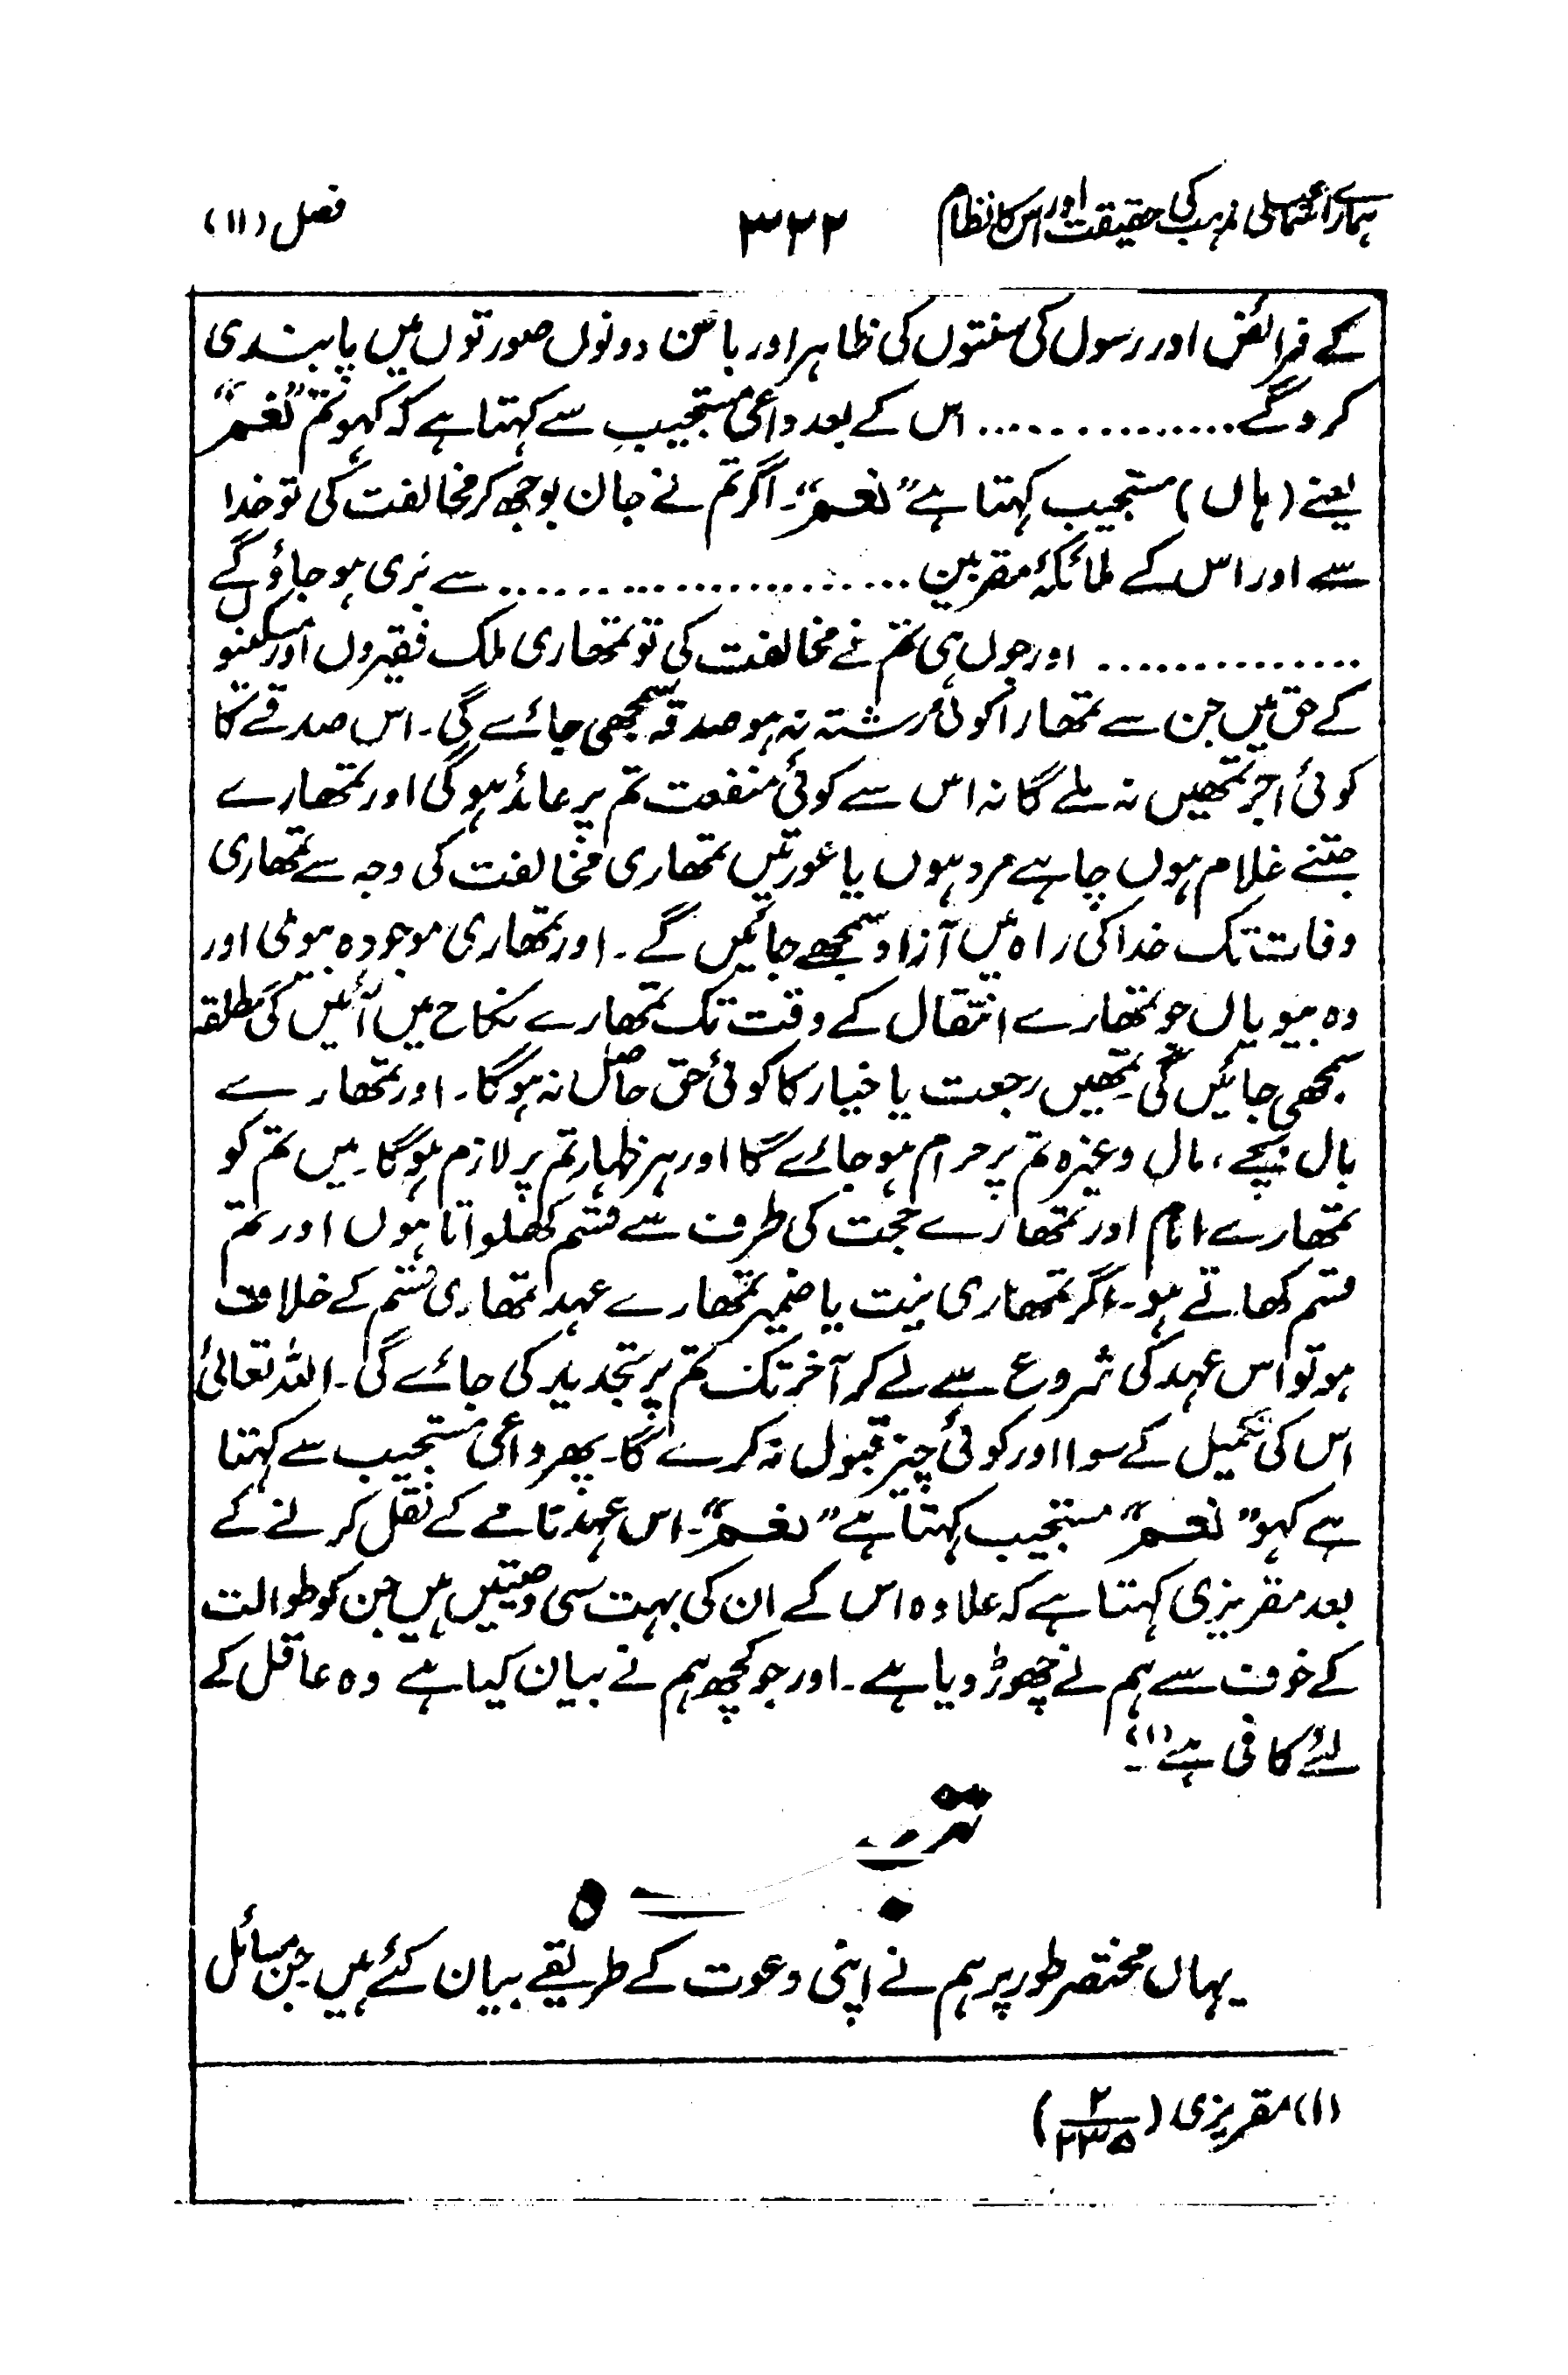 ہمارے اسمٰعیلی مذہب کی حقیقت اور اس کا نظام ۳۲۲ فصل (۱۱)
کے فرائض اور رسول کی سنتوں کی ظاہر اور باطن دونوں صورتوں میں پابندی
کروگے............... اس کے بعد داعی مستجیب سے کہتا ہے کہ کہو تم ”نعم“
یعنے (ہاں) مستجیب کہتا ہے ”نعم“۔ اگر تم نے جان بوجھ کر مخالفت کی تو خدا
سے اور اس کے ملائکۂ مقربین ........................ سے بری ہوجاؤگے
............... اور جوں ہی تم نے مخالفت کی تو تمھاری ملک فقیروں اور مسکینوں
کے حق میں جن سے تمھارا کوئی رشتہ نہ ہو صدقہ سمجھی جائے گی۔ اس صدقے کا
کوئی اجر تمھیں نہ ملے گا نہ اس سے کوئی منفعت تم پر عائد ہوگی اور تمھارے
جتنے غلام ہوں چاہے مرد ہوں یا عورتیں تمھاری مخالفت کی وجہ سے تمھاری
وفات تک خدا کی راہ میں آزاد سمجھے جائیں گے۔ اور تمھاری موجودہ بیوی اور
وہ بیویاں جو تمھارے انتقال کے وقت تک تمھارے نکاح میں آئیں گی مطلقہ
سمجھی جائیں گی تمھیں رجعت یا خیار کا کوئی حق حاصل نہ ہوگا۔ اور تمھارے
بال بچے، مال وغیرہ تم پر حرام ہوجائے گا اور ہر ظہار تم پر لازم ہوگا۔ میں تم کو
تمھارے امام اور تمھارے حجت کی طرف سے قسم کھلواتا ہوں اور تم
قسم کھاتے ہو۔ اگر تمھاری نیت یا ضمیر تمھارے عہد تمھاری قسم کے خلاف
ہو تو اس عہد کی شروع سے لے کر آخر تک تم پر تجدید کی جائے گی۔ اللہ تعالیٰ
اس کی تکمیل کے سوا اور کوئی چیز قبول نہ کرے گا۔ پھر داعی مستجیب سے کہتا
ہے کہو ”نعم“ مستجیب کہتا ہے ”نعم“۔ اس عہدنامے کے نقل کرنے کے
بعد مقریزی کہتا ہے کہ علاوہ اس کے ان کی بہت سی وصیتیں ہیں جن کو طوالت
کے خوف سے ہم نے چھوڑ دیا ہے۔ اور جو کچھ ہم نے بیان کیا ہے وہ عاقل کے
لئے کافی ہے (۱)۔
یہاں مختصر طور پر ہم نے اپنی دعوت کے طریقے بیان کئے ہیں جن مسائل
(۱) مقریزی (۲/۲۳۵)